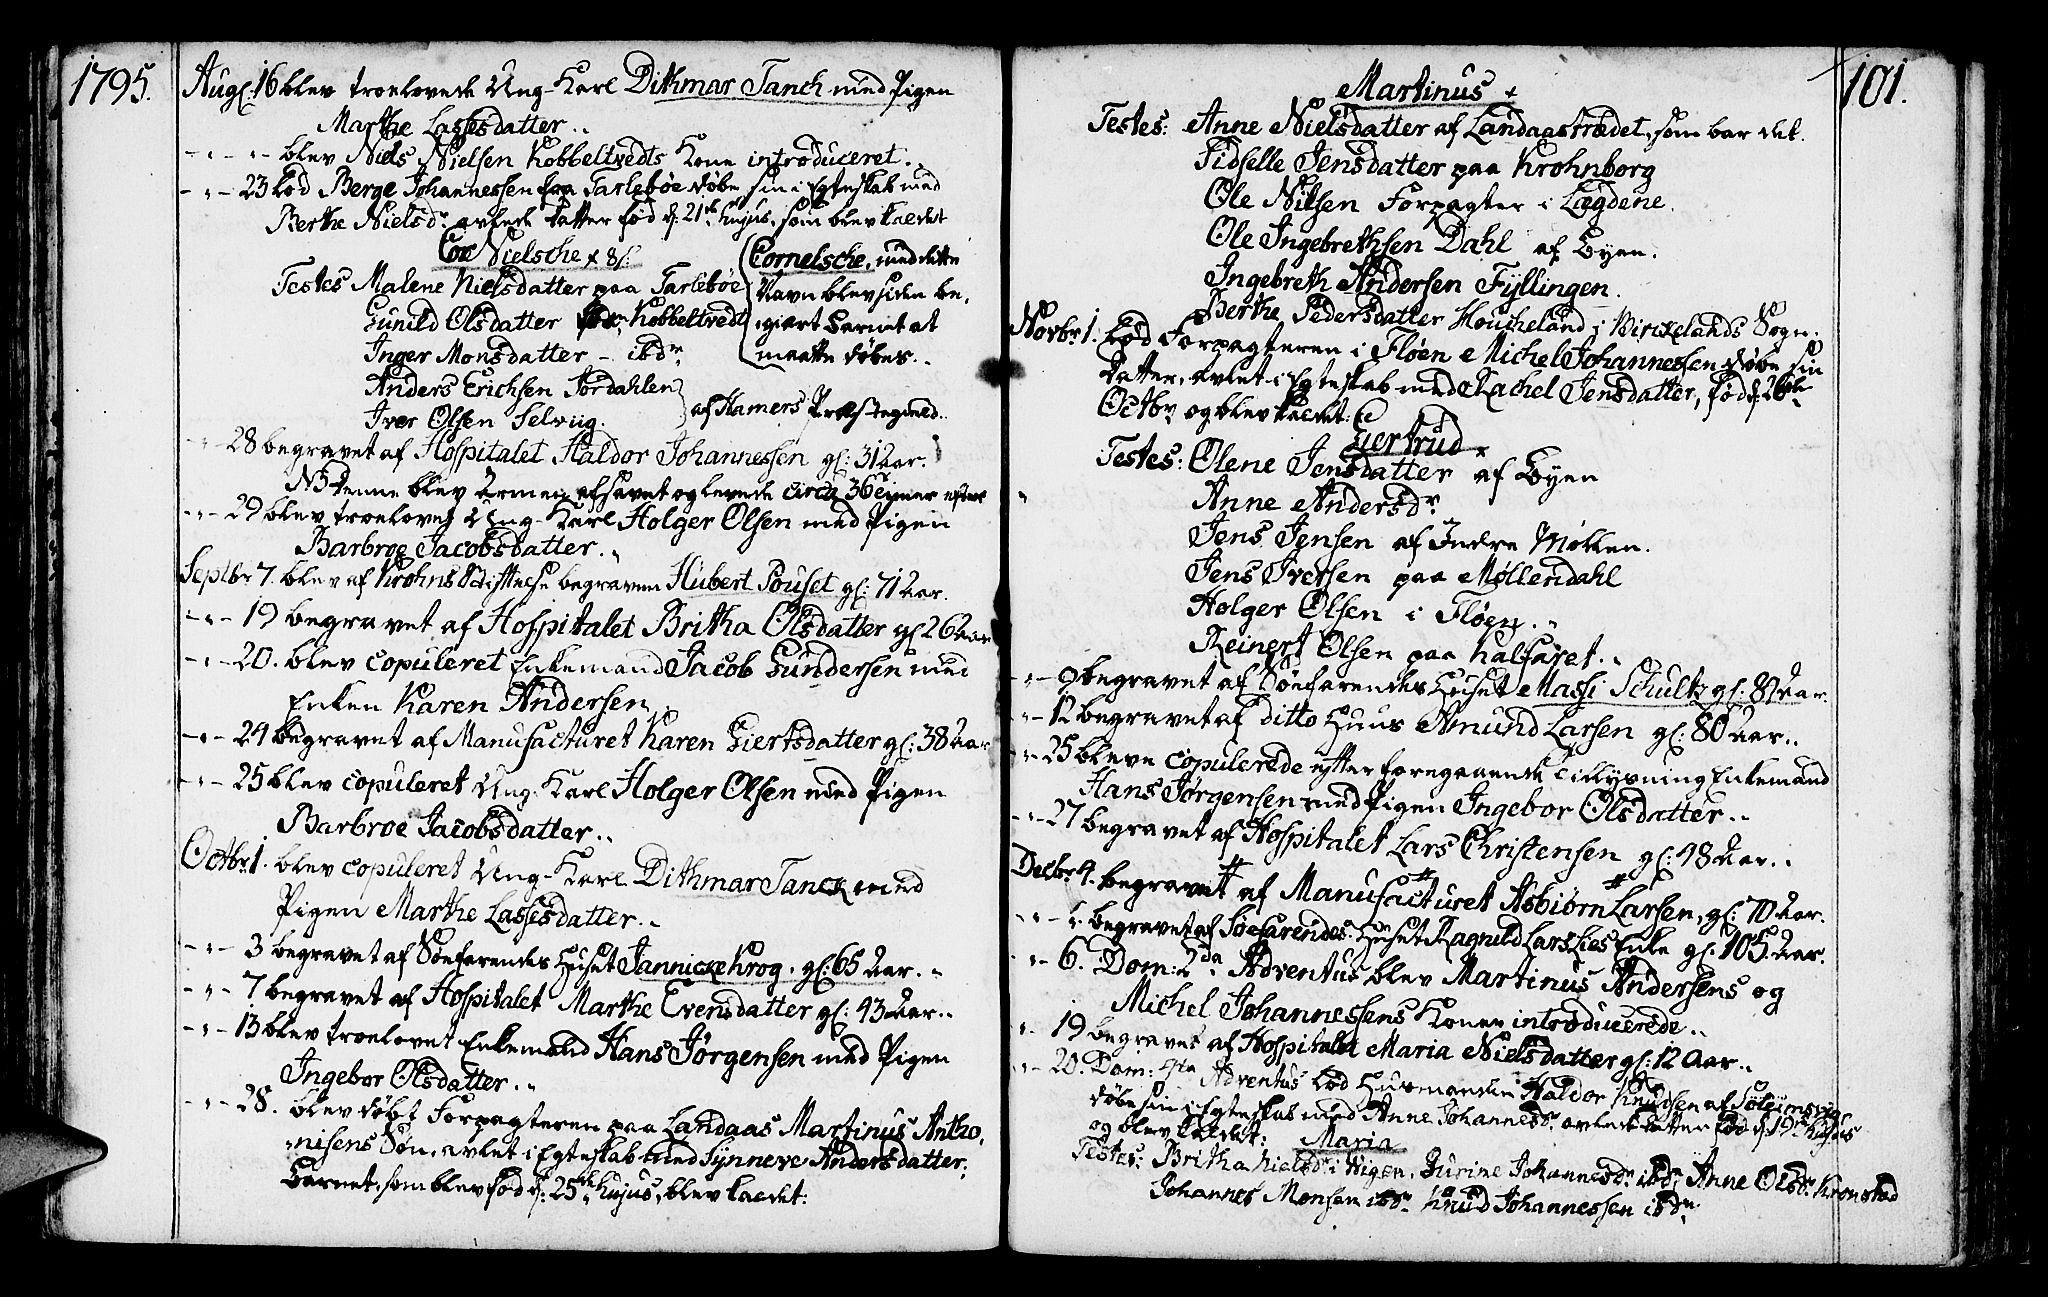 1795.
Augs: 16 blev troelovede Ung-Karl Dithmar Tanck med Pigen
Marthe Lassesdatter..
- " - " - blev Niels Nielsen Kobbeltvedts Kone introduceret.
- " - 23 Lod Berge Johannessen paa Tarlebøe døbe sin i Egteskab med
Berthe Nielsdr. avlede Datter fød d. 21de hujus, som blev kaldet
Cor Nielsche + 8/:
Testes Malene Nielsdatter paa Tarlebøe
Gunild Olsdatter Kobbeltvedt
Inger Monsdatter - ibdm
Anders Erichsen Jordahlen
Iver Olsen Selviig.
af Hamers Præstegield..
Cornelsche, med dette
Navn blev siden be,
giært Barnet at
maatte døbes..
" - 28 begravet af Hospitalet Haldor Johannessen gl: 31 Aar.
NB Denne blev Armen afsavet og levede circa 36 Timer efter
- " - 29 blev troelovet Ung-Karl Holger Olsen med Pigen
Barbroe Jacobsdatter..
Septbr 7. blev af Krohns Stiftelse begraven Hubert Pouset gl: 71 Aar.
- " - 19 begravet af Hospitalet Britha Olsdatter gl 26 Aar
- " - 20. blev copuleret Enkemand Jacob Gundersen med
Enken Karen Andersen
- " - 24 begravet af Manufacturet Karen Giertsdatter gl: 38 Aar
- " - 25 blev copuleret Ung-Karl Holger Olsen med Pigen
Barbroe Jacobsdatter..
Octbr 1. blev copuleret Ung-Karl Dithmar Tanck med
Pigen Marthe Lassesdatter..
- " - 3 begravet af Søefarendes Huset Jannicke Krog. gl: 65 Aar..
- " - 7 begravet af Hospitalet Marthe Evensdatter gl: 43 Aar..
- " - 13 blev troelovet Enkemand Hans Jørgensen med Pigen
Ingebor Olsdatter..
- " - 28. blev døbt Forpagteren paa Landaas Martinus Antho,
nisens Søn, avlet i Egteskab med Synneve Andersdatter.
Barnet, som blev fød d. 25de hujus, blev kaldet:
101.
Martinus +
Testes: Anne Nielsdatter af Landaastrædet, som bar det.
Sidselle Jensdatter paa Krohnborg
Ole Nilsen Forpagter i Lægdene.
Ole Ingebrethsen Dahl af Byen.
Ingebreth Andersen Fyllingen.
Berthe Pedersdatter Houcheland i Birckelands Sogn.
Novbr 1. Lod Forpagteren i Fløen Michel Johannessen døbe sin
Datter, avlet i Egteskab med Rachel Jensdatter, fød d. 26de
Octbr og blev kaldet:
Giertrud +
Testes: Olene Jensdatter af Byen
Anne Andersdr
Jens Jensen af Indre Møllen.
Jens Iversen paa Møllendahl
Holger Olsen i Fløen..
Reinert Olsen paa Kalfaret..
- " - 9 begravet af Søefarendes Huset Massi Schultz gl: 89 Aar.
" - 12 begravet af ditto Huus Amund Larsen gl: 80 Aar..
- " - 25 bleve copulerede efter foregaaende Tillysning Enkemand
Hans Jørgensen med Pigen Ingebor Olsdatter..
- " - 27 begravet af Hospitalet Lars Christensen gl: 48 Aar..
Decbr 4. begravet af Manufacturet Asbiørn Larsen, gl: 70 Aar.
- " - begravet af Søefarendes Huset Ragnild Lars Lies Enke gl: 105 Aar.
- " - 6. Dom: 2da Adventus blev Martinus Andersens og
Michel Johannessens Koner introducerede..
" - 19 begravet af Hospitalet Maria Nielsdatter gl: 12 Aar..
" - 20. Dom: 4ta Adventus Lod Husmanden Haldor Knudsen af Soleimsvig
døbe sin i Egteskab med Anne Johannesdr. avlede Datter fød d. 19de hujus
og blev kaldet: Maria
Testes: Britha Nielsdr i Wigen, Gurine Johannesdr ibdm Anne Olsdr Kronstad
Johannes Monsen ibdm Knud Johannessen ibdm